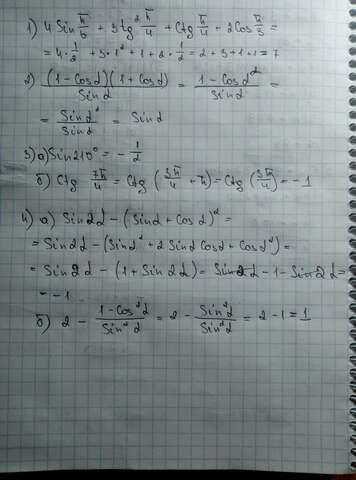 1) 4 Sin π/6 + 3 tg² π/4 + Ctg π/4 + 2Cos π/3 =
= 4 · 1/2 + 3 · 1² + 1 + 2 · 1/2 = 2 + 3 + 1 + 1 = 7
2) (1 - Cosα)(1 + Cosα) / Sinα = 1 - Cosα² / Sinα =
= Sinα² / Sinα = Sinα
3) а) Sin210° = - 1/2
б) Ctg 7π/4 = Ctg (3π/4 + π) = Ctg (3π/4) = - 1
4) а) Sin2α - (Sinα + Cosα)² =
= Sin2α - (Sinα² + 2 Sinα Cosα + Cosα²) =
= Sin2α - (1 + Sin 2α) = Sin2α - 1 - Sin2α =
= -1
б) 2 - 1 - Cos²α / Sin²α = 2 - Sin²α / Sin²α = 2 - 1 = 1